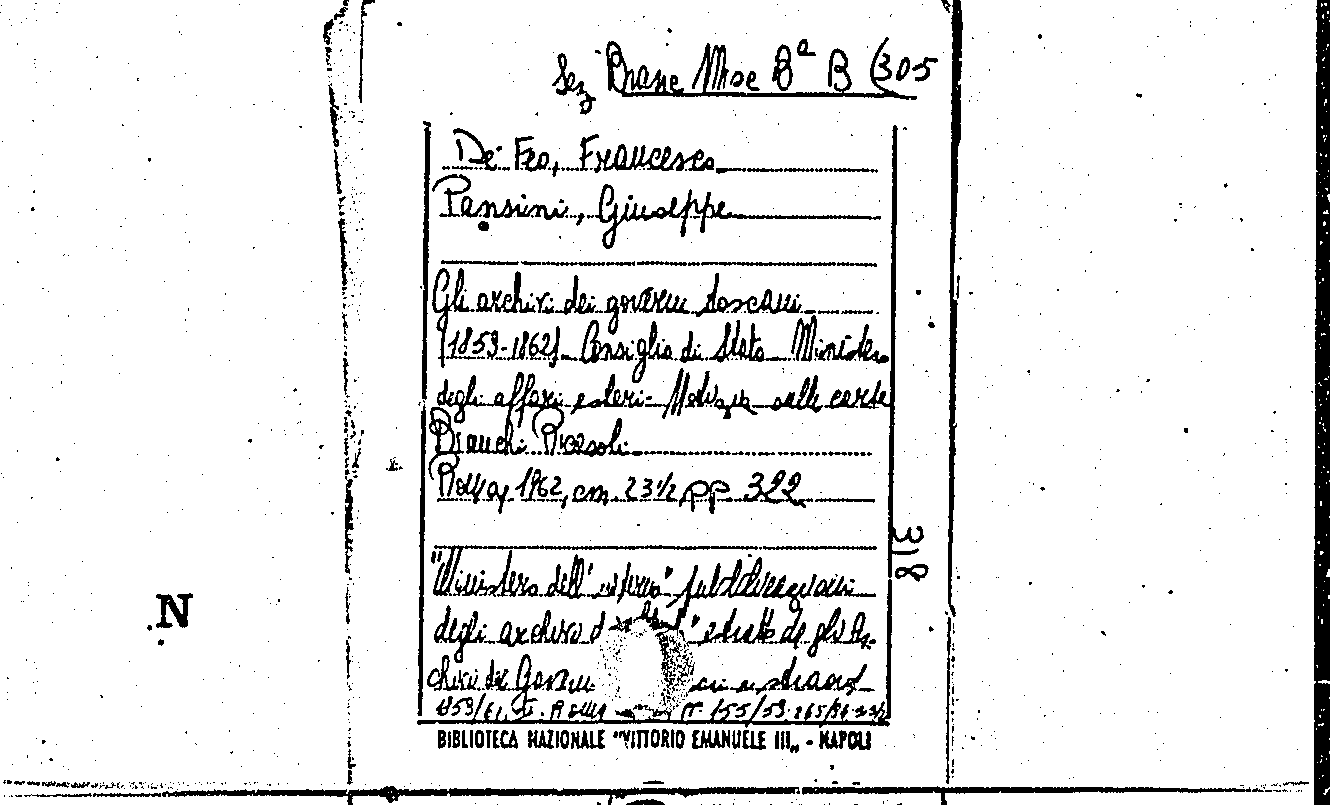 Sez Branc Misc Bª B (305
De Feo, Francesco
Pansini, Giuseppe
Gli archivi dei governi toscani
(1859-1862). Consiglio di Stato - Ministero
degli affari esteri - Notizia sulle carte
Bianchi Ricasoli
Roma, 1962, cm. 23 1/2 pp 322
318
"Ministero dell'interno" pubblicazioni
degli archivi estratto da gli Ar-
chivi dei Governi
1859/61, Roma nº 155/59
N
BIBLIOTECA NAZIONALE "VITTORIO EMANUELE III„ - NAPOLI